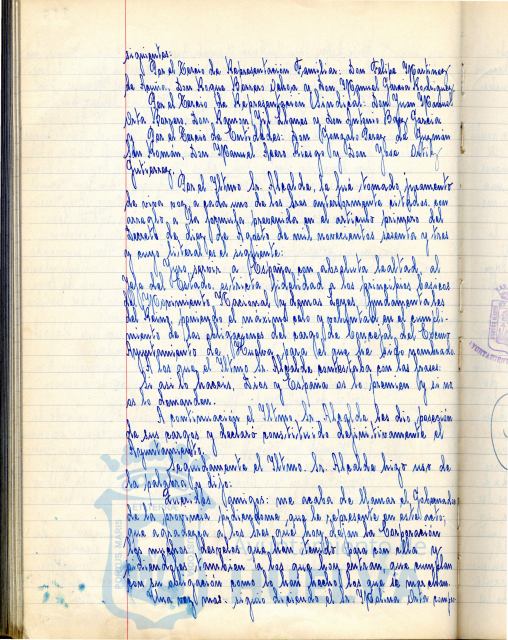 siguientes:
Por el Tercio de Representación Familiar: Don Felipe Martínez
de Don Roque Barrero y Don Manuel García Rodríguez
Por el Tercio de Representación Sindical: Don Juan Manuel
Orta Barrero, Don Ramón Gil y Don Antonio Báez García
Por el Tercio de Entidades: Don Gonzalo Pérez de Guzmán
San Román, Don Manuel Riesgo y Don José Ortiz
Gutierrez.
Por el Iltmo. Sr. Alcalde, le fué tomado juramento
de viva voz a cada uno de los tres anteriormente citados, con
arreglo a la formula prevenida en el articulo primero del
Decreto de diez de Agosto de mil novecientos sesenta y tres
y cuyo literal es el siguiente:
Juro servir a España con absoluta lealtad, al
Jefe del Estado, estricta fidelidad a los principios basicos
del Movimiento Nacional y demas Leyes fundamentales
del Reino, poniendo el maximo celo y voluntad en el cumpli-
miento de las obligaciones del cargo de Concejal del Excmo.
Ayuntamiento de Huelva, para el que he sido nombrado.
A los que el Iltmo. Sr. Alcalde contestaba con las frases:
Si asi lo haceis, Dios y España os lo premien y si no
os lo demanden.
A continuación el Iltmo. Sr. Alcalde les dio posesión
de sus cargos y declaró constituido definitivamente el
Ayuntamiento.
Seguidamente el Iltmo. Sr. Alcalde hizo uso de
la palabra y dijo:
Queridos amigos: me acaba de llamar el Gobernador
de la provincia pidiendome que le represente en este acto;
que agradezca a los que hoy dejan la Corporación
los muchos desvelos que han tenido para con ella y
pidiendoles tambien a los que hoy entran que cumplan
con su obligación como la han hecho los que se marchan.
Una vez mas - siguió diciendo el Sr. Molina Orta